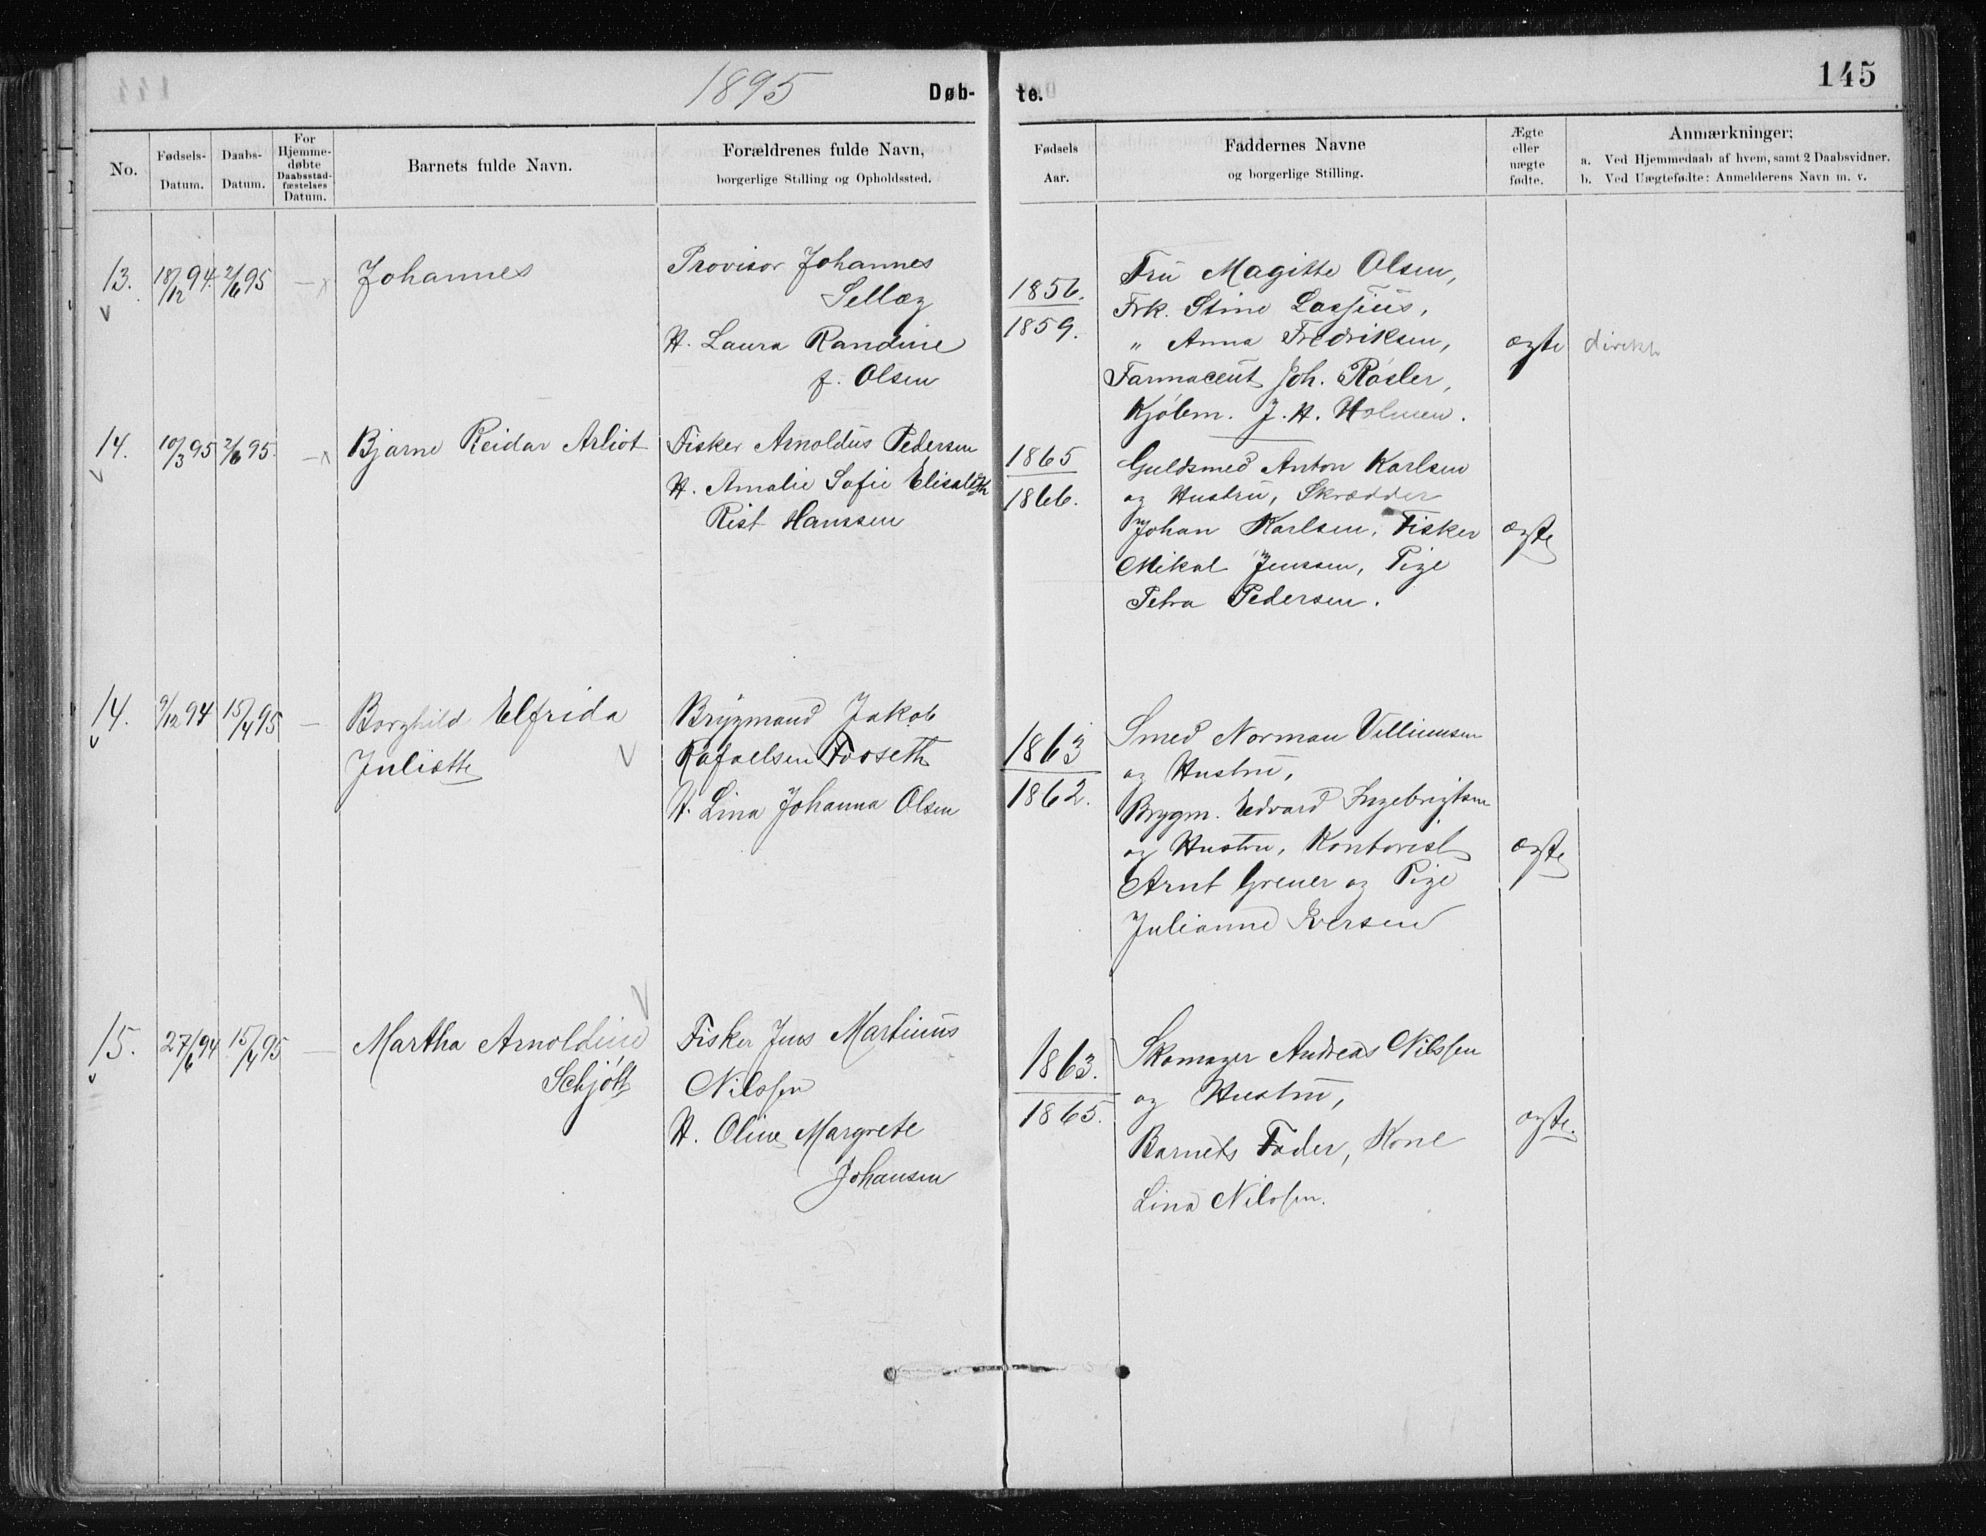 1895
Døb-
te.
145
No.
Fødsels-
Datum.
Daabs-
Datum.
For
Hjemme-
døbte
Daabsstad-
fæstelses
Datum.
Barnets fulde Navn.
Forældrenes fulde Navn,
borgerlige Stilling og Opholdssted.
Fødsels
Aar.
Faddernes Navne
og borgerlige Stilling.
Ægte
eller
uægte
fødte.
Anmærkninger:
a. Ved Hjemmedaab af hvem, samt 2 Daabsvidner.
b. Ved Uægtefødte: Anmelderens Navn m. v.
13.
18/12 94.
2/6 95
Johannes
Provisor Johannes
Sellæg
H. Laura Randine
f. Olsen
1856.
1859.
Fru Magitte Olsen,
Frk. Stine Lassius,
" Anna Fredriksen,
Farmaceut Joh. Røsler,
Kjøbm. J. H. Holmen.
ægte
direkte
14.
10/3 95
2/6 95.
Bjarne Reidar Arliot
Fisker Arnoldus Pedersen
H. Amalie Sofie Elisabeth
Rist Hanssen
1865
1866.
Guldsmed Anton Karlsen
og Hustru, Skrædder
Johan Karlsen, Fisker
Mikal Jenssen, Pige
Petra Pedersen.
ægte
14.
9/12 94
15/4 95
Borghild Elfrida
Juliette
Brygmand Jakob
Rafaelsen Forseth
H. Lina Johanna Olsen
1863
1862.
Smed Norman Villiumsen
og Hustru,
Brygm. Edvard Ingebrigtsen
og Hustru, Kontorist
Arnt Grener og Pige
Julianne Iversen
ægte
15.
27/6 94
15/4 95
Martha Arnoldine
Schjött
Fisker Jens Martinus
Nilssen
H. Oline Margrete
Johansen
1863.
1865.
Skomager Andreas Nilssen
og Hustru,
Barnets Fader, Kone
Lina Nilssen.
ægte.